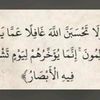 لَا تَحْسَبَنَّ اللَّهَ غَافِلًا عَمَّا
إِنَّمَا يُؤَخِّرُهُمْ لِيَوْمٍ
فِيهِ الْأَبْصَارُ